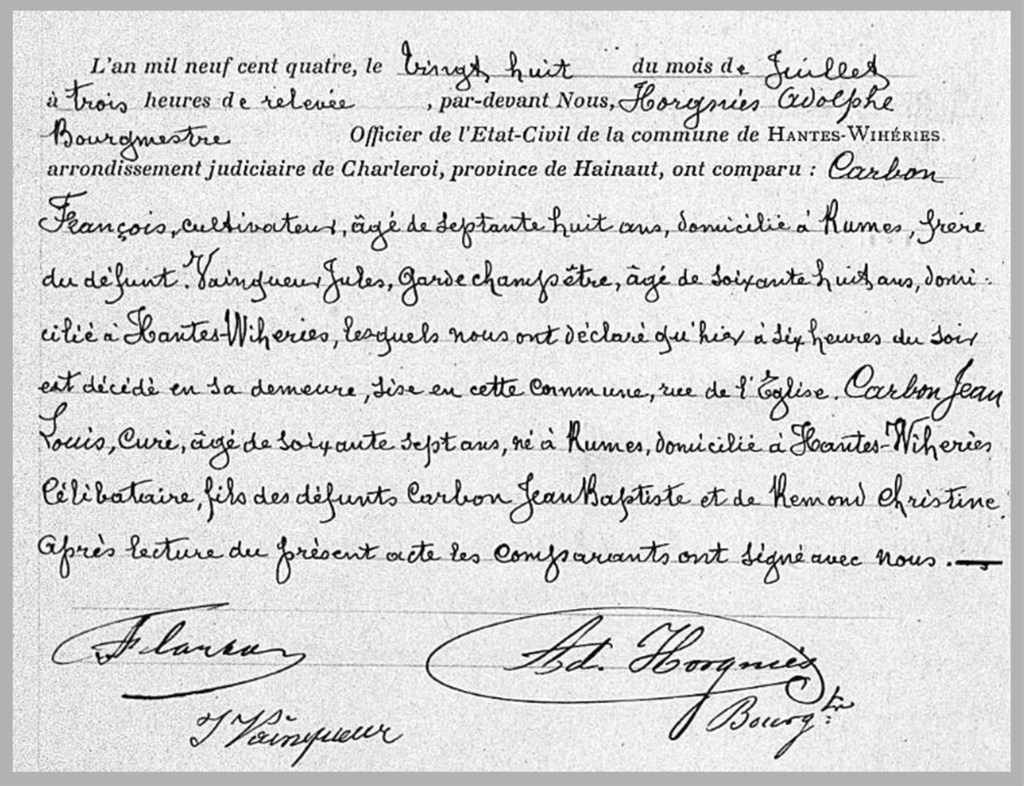 L'an mil neuf cent quatre, le Vingt huit du mois de Juillet
à trois heures de relevée , par-devant Nous, Horgniès Adolphe
Bourgmestre Officier de l'Etat-Civil de la commune de HANTES-WIHÉRIES.
arrondissement judiciaire de Charleroi, province de Hainaut, ont comparu : Carbon
François, cultivateur, âgé de septante huit ans, domicilié à Rumes, frère
du défunt. Vainqueur Jules, Garde champêtre, âgé de soixante huit ans, domi-
cilié à Hantes-Wiheries, lesquels nous ont déclaré qu'hier à six heures du soir
est décédé en sa demeure, sise en cette commune, rue de l'Église. Carbon Jean
Louis, Curé, âgé de soixante sept ans, né à Rumes, domicilié à Hantes-Wiheries
Célibataire, fils des défunts Carbon Jean Baptiste et de Remond Christine.
Après lecture du présent acte les comparants ont signé avec nous.
F Carbon Ad. Horgniès
J Vainqueur Bourg:tre